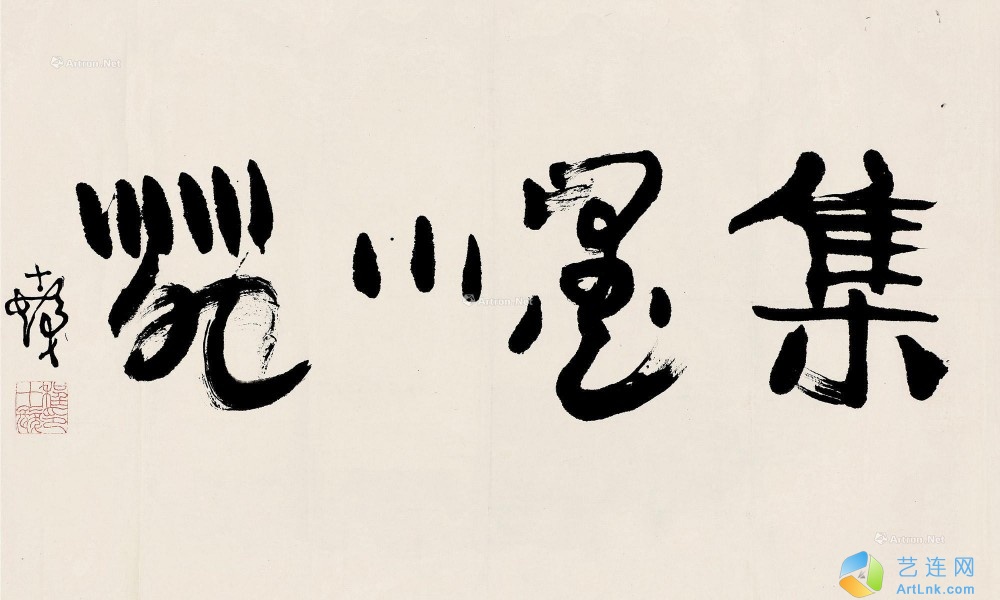 集墨小苑
十髮
Artron.Net
Artron.Net
Artron.Net
艺连网
ArtLnk.com